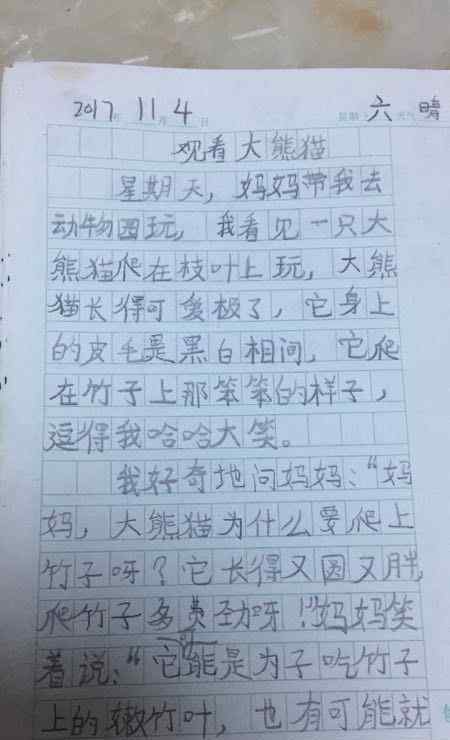 2017年 11月 4日 星期六 天气 晴
观看大熊猫
星期天，妈妈带我去
动物园玩，我看见一只大
熊猫爬在枝叶上玩，大熊
猫长得可爱极了，它身上
的皮毛是黑白相间，它爬
在竹子上那笨笨的样子，
逗得我哈哈大笑。
我好奇地问妈妈：“妈
妈，大熊猫为什么要爬上
竹子呀？它长得又圆又胖，
爬竹子多费劲呀！”妈妈笑
着说：“它能是为了吃竹子
上的嫩竹叶，也有可能就